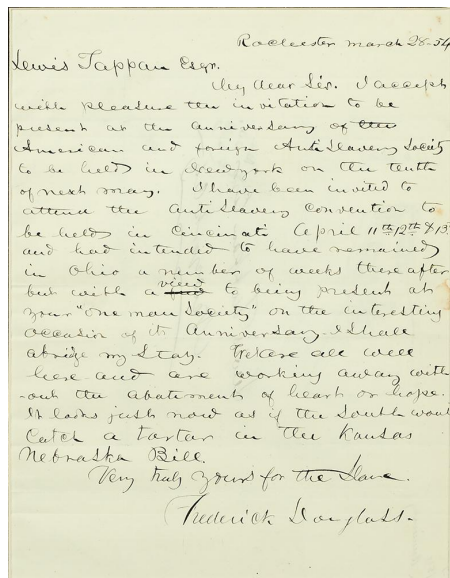 Rochester March 28-54
Lewis Tappan Esqr.
My dear Sir. I accept
with pleasure the invitation to be
present at the anniversary of the
American and foreign AntiSlavery Society
to be held in Newyork on the tenth
of next may. I have been invited to
attend the AntiSlavery Convention to
be held in Cincinati April 11th 12th & 13
and had intended to have remained
in Ohio a number of weeks thereafter
but with a view to being present at
your "one man Society" on the interesting
occasion of its Anniversary I shall
abridge my Stay. We are all well
here and are working away with
-out the abatement of heart or hope.
It looks just now as if the South would
Catch a tartar in the Kansas
Nebraska Bill
Very truly yours for the Slave.
Frederick Douglass-